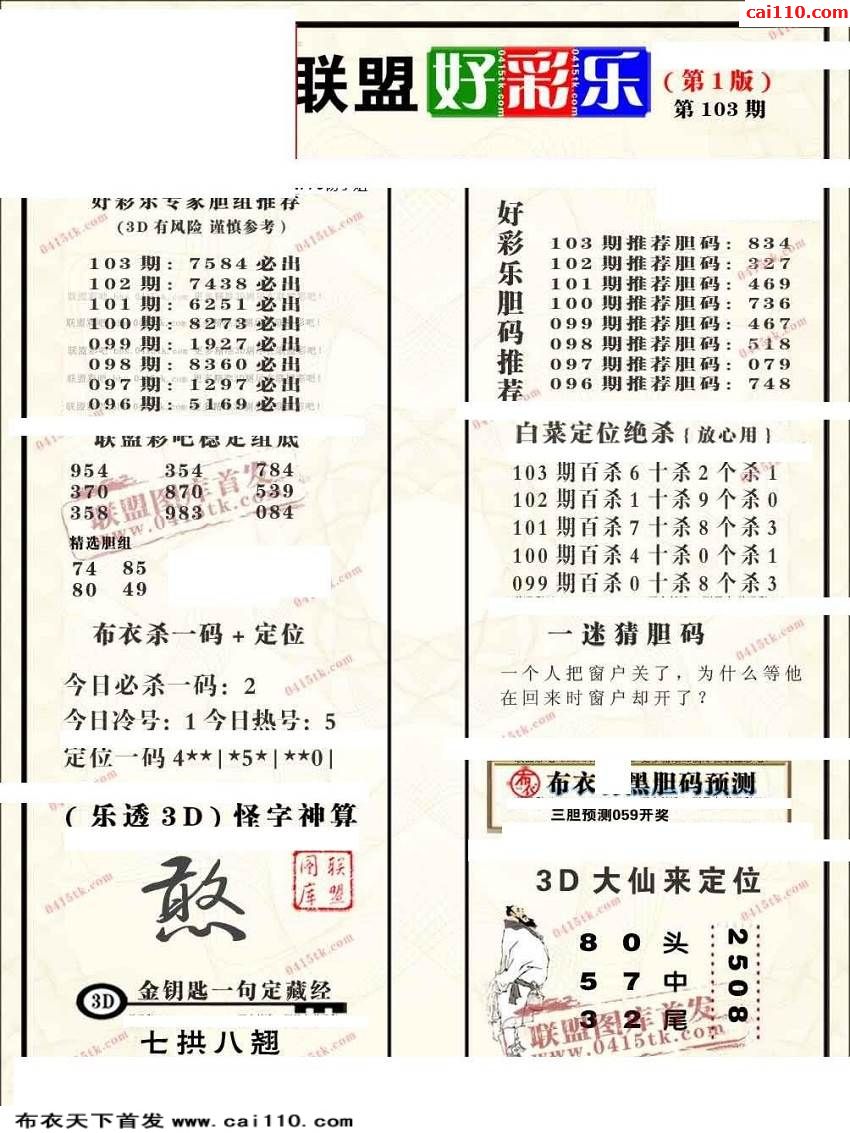 cai110.com
联盟好彩乐
(第1版)
第103期
好彩乐专家胆组推荐
(3D有风险 谨慎参考)
103期: 7584必出
102期: 7438必出
101期: 6251必出
100期: 8273必出
099期: 1927必出
098期: 8360必出
097期: 1297必出
096期: 5169必出
联盟彩吧稳定组底
954 354 784
370 870 539
358 983 084
精选胆组
74 85
80 49
布衣杀一码+定位
今日必杀一码: 2
今日冷号: 1 今日热号: 5
定位一码 4**|*5*|**0|
(乐透3D)怪字神算
憨
联盟图库
3D 金钥匙一句定藏经
七拱八翘
好彩乐胆码推荐
103期推荐胆码: 834
102期推荐胆码: 327
101期推荐胆码: 469
100期推荐胆码: 736
099期推荐胆码: 467
098期推荐胆码: 518
097期推荐胆码: 079
096期推荐胆码: 748
白菜定位绝杀{放心用}
103期百杀6十杀2个杀1
102期百杀1十杀9个杀0
101期百杀7十杀8个杀3
100期百杀4十杀0个杀1
099期百杀0十杀8个杀3
一迷猜胆码
一个人把窗户关了，为什么等他
在回来时窗户却开了？
布衣 黑胆码预测
三胆预测059开奖
3D大仙来定位
8 0 头
5 7 中
3 2 尾
2508
联盟图库首发
www.0415tk.com
0415tk.com
布衣天下首发 www.cai110.com